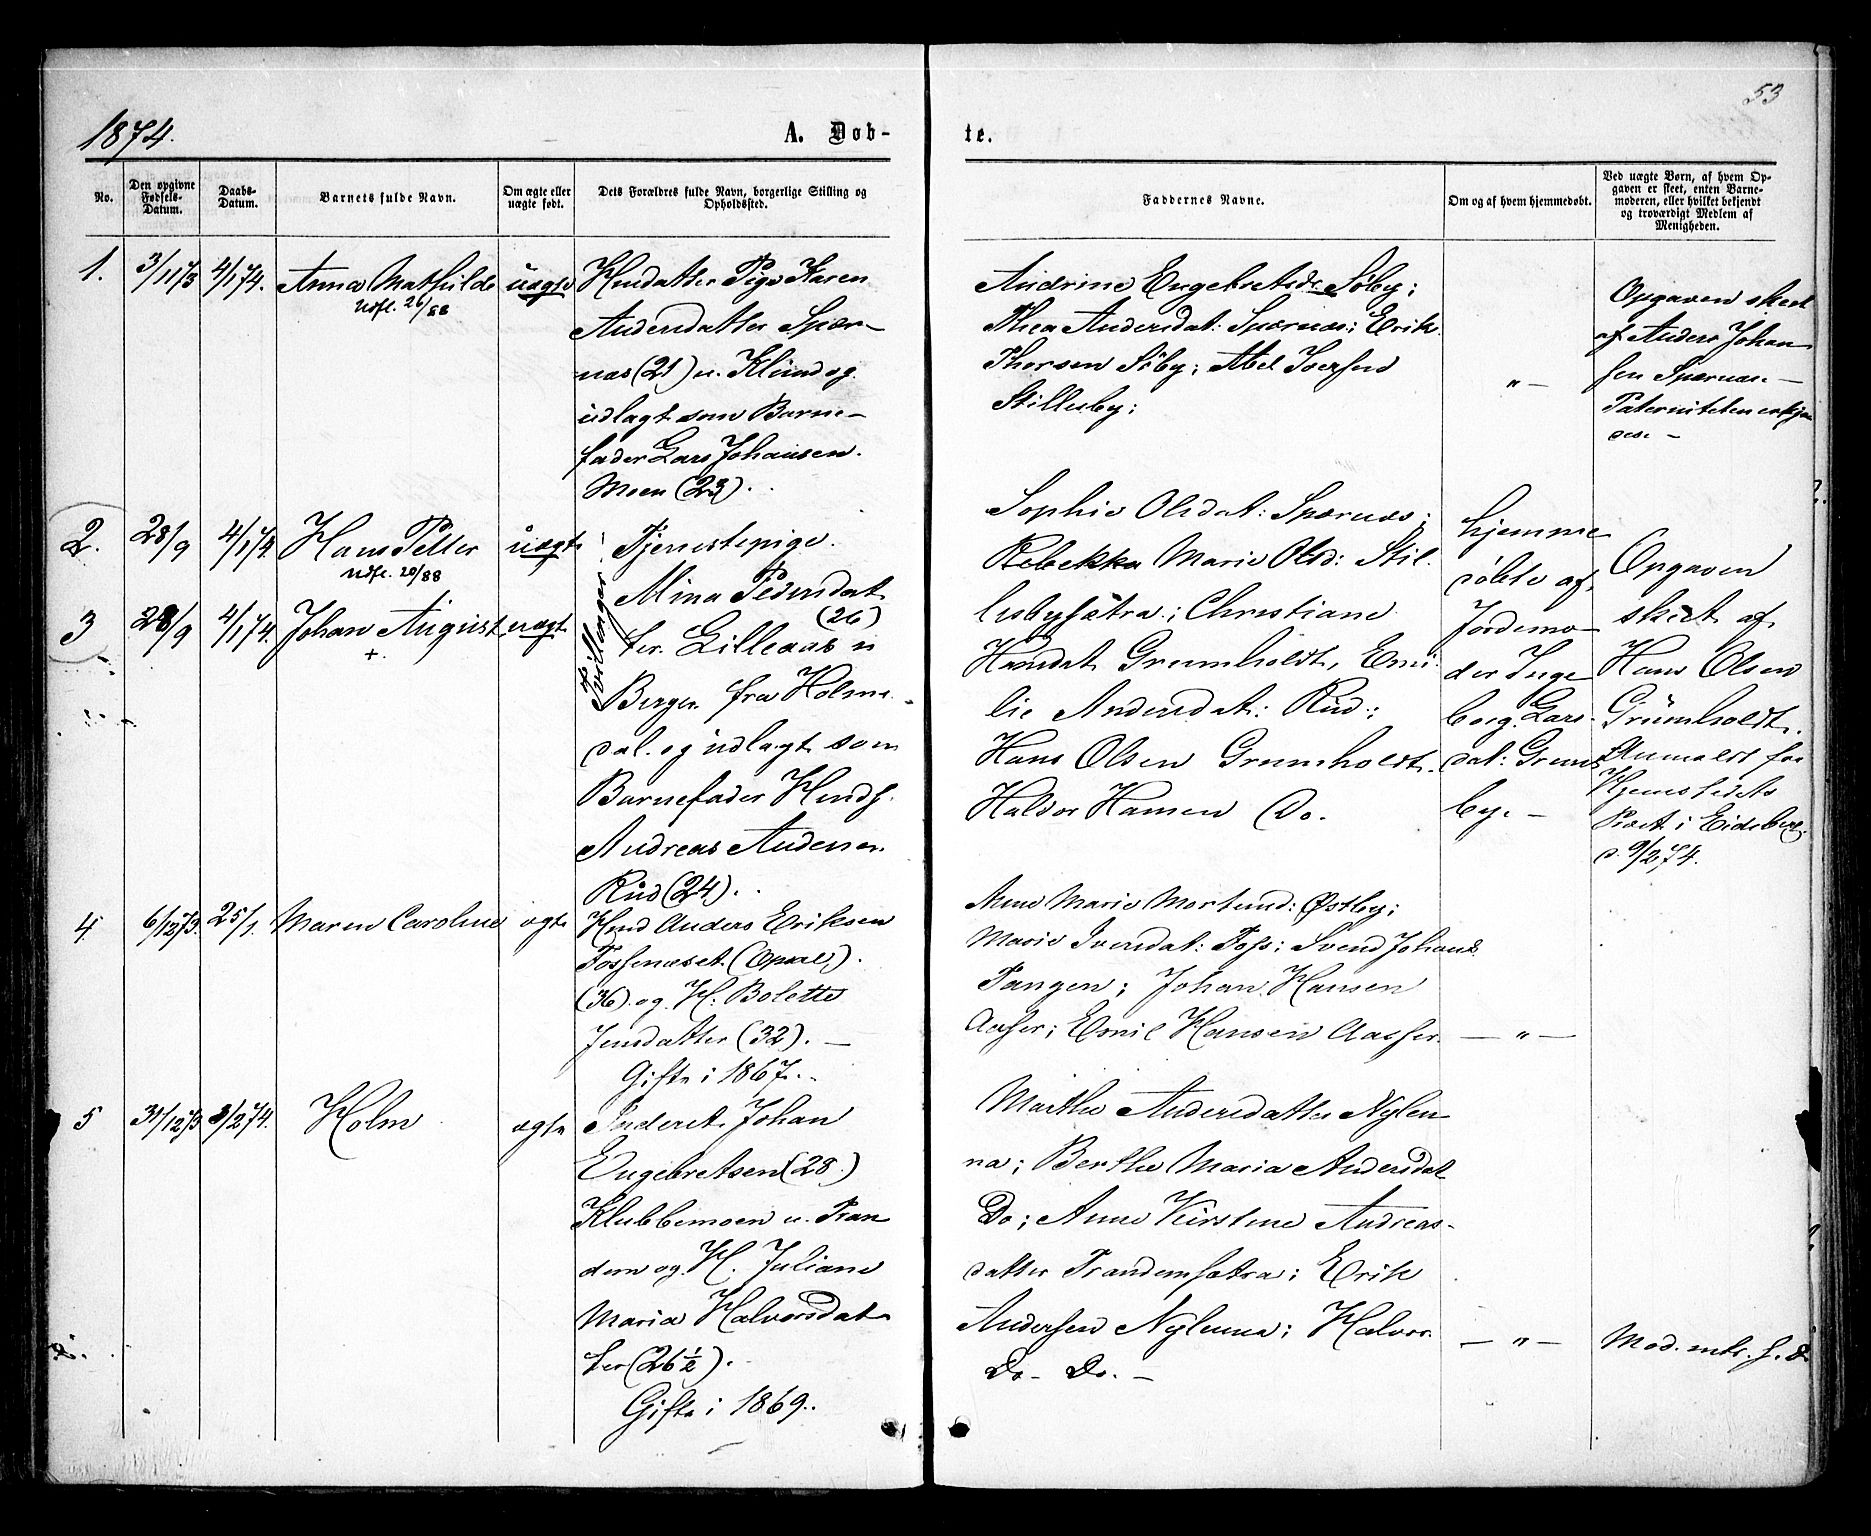 53
1874.
A. Døb-
te.
No.
Den opgivne Fødsels-Datum.
Daabs-Datum.
Barnets fulde Navn.
Om ægte eller uægte født.
Dets Forældres fulde Navn, borgerlige Stilling og Opholdssted.
Faddernes Navne.
Om og af hvem hjemmedøbt.
Ved uægte Børn, af hvem Op-
gaven er skeet, enten Barne-
moderen, eller hvilket bekjendt
og troværdigt Medlem af
Menigheden.
1.
3/11 73
4/1 74.
Anna Mathilde
Udfl. 26/88
uægte
Husdatter Pige Karen
Andersdatter Spær-
næs (21) u. Klund og
udlagt som Barne-
fader Lars Johansen
Moen (23).
Andrine Engebretsdr. Søby;
Thea Andersdat: Spærnæs; Erik
Thorsen Söby; Abel Iversen
Stillesby;
„ –
Opgaven skeet
af Anders Johan
sen Spærnæs –
Paterniteten erkjen
des. –
2.
28/9
4/1 74
Hans Petter
Udfl. 20/88
uægte
3
28/9
4/1 74.
Johan August
+.
uægte
Tvillinger
Tjenestepige
Mina Pedersdat
(26)
ter. Lilleaas u
Berger fra Holms
dal. og udlagt som
Barnefader Huusf.
Andreas Andersen
Rud (24).
Sophie Olsdat: Spærnæs;
Rebekka Marie Olsd: Stil
lesbysætra; Christiane
Hansdat Grumholdt, Emi
lie Andersdat: Rud;
Hans Olsen Grumholdt.
Haldor Hansen Do.
hjemme
døbte af
Jordemo
der Inge
borg Lars
dat: Grums
by. –
Opgaven
skeet af
Hans Olsen
Grumholdt.
Anmeldt for
Hjemstedets
Præst i Eidsberg
d. 9/2 74.
4.
6/12 73.
25/1.
Maren Caroline
ægte
Husmd Anders Eriksen
Fossenæset. (Opsal).
(36) og H. Bolette
Jensdatter (32). –
Gifte i 1867.
Anne Marie Mortensd: Østby;
Marie Iversdat: Foss; Svend Johans
Tangen; Johan Hansen
Aaser; Emil Hansen Aasser.
– „ –
5
31/12 73
8/2 74.
Holm
ægte
Inderst. Johan
Engebretsen (28.)
Klubbemoen u. Tran
dem og H. Juliane
Maria Halvorsdat
ter (26 ½).
Gifte i 1869.
Marthe Andersdatter Nylen
na; Berthe Maria Andersdat
Do; Anne Kirstine Andreas-
datter Trandemsætra; Erik
Andersen Nylenna; Halvor
Do – Do. –
– „ –
Mod. intr. s. D